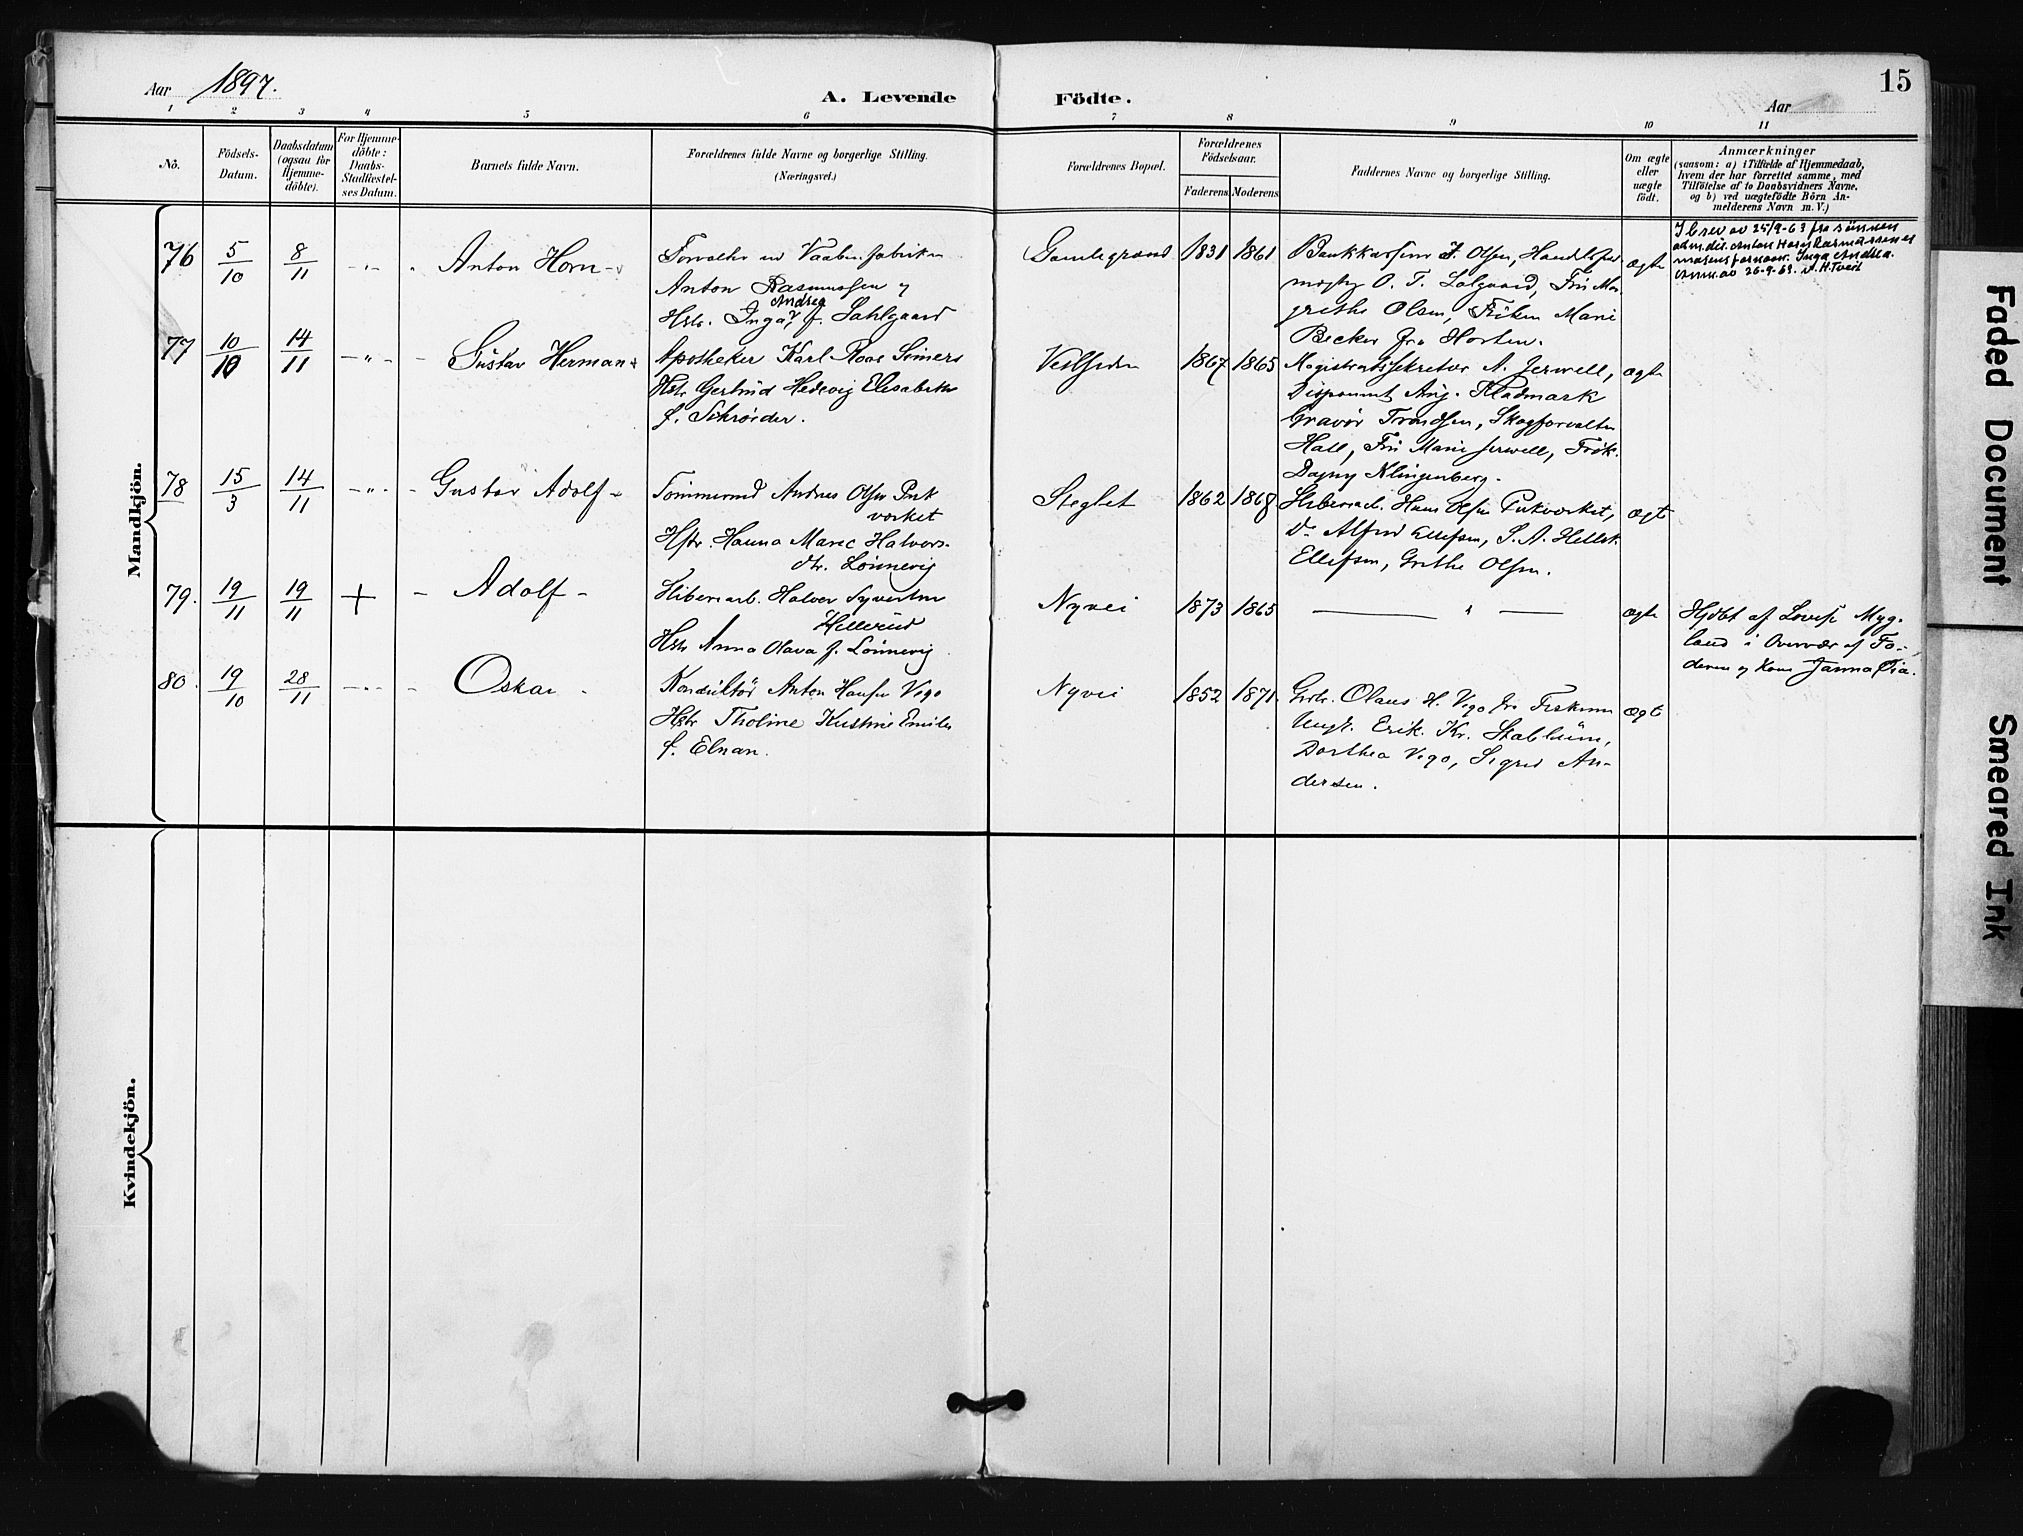 Aar 1897.
A. Levende Födte.
Aar
15
1 2 3 4 5 6 7 8 9 10 11
No.
Födsels-
Datum.
Daabsdatum
(ogsaa for
Hjemme-
döbte).
For Hjemme-
döbte:
Daabs-
Stadfæstel-
ses Datum.
Barnets fulde Navn.
Forældrenes fulde Navne og borgerlige Stilling.
(Næringsvei.)
Forældrenes Bopæl.
Forældrenes
Födselsaar.
Faderens Moderens
Faddernes Navne og borgerlige Stilling.
Om ægte
eller
uægte
födt.
Anmærkninger
(saasom: a) i Tilfælde af Hjemmedaab,
hvem der har forrettet samme, med
Tilföielse af to Daabsvidners Navne,
og b) ved uægtefödte Börn An-
melderens Navn m. V.)
Mandkjön.
76 5/10 8/11 Anton Horn
Forvalter ved Vaabenfabriken
Anton Rasmussen og
Andrea
Hstr. Inga f. Dahlgaard
Gamlegrænd 1831 1861
Bankkasserer F. Olsen, Handelsfuld
mægtig O. T. Dalgaard, Fru Mar
grethe Olsen, Frøken Marie
Becker fra Horten.
ægte
I brev av 25/9-63 fra sønnen
adm.dir. Anton Horn Rasmussen er
morens fornavn: Inga Andrea.
Anm. av 26-9-63. H. Tveit
77 10/10 14/11 Gustav Herman
Apotheker Karl Roar
Hstr. Gertrud Hedevig Elisabeth
f. Schrøder.
Vestsiden 1867 1865
Magistratssekretær A. Jerwell,
Disponent Aug. Kladmark
Gravør Trondsen, Skogforvalter
Hall, Fru Marie Jerwell, Frøk.
Dagny Klingenberg.
ægte
78 15/3 14/11 Gustav Adolf
Tømmermd Andreas Olsen Puk
værket
Hstr. Hanna Marie Halvors-
dtr. Lønnevig
Steglet 1862 1868
Sliberarb. Hans Olsen Pukværket,
Do Alfred Ellefsen, S. A.
Ellefsen, Grethe Olsen.
ægte
79. 19/11 19/11 + Adolf
Sliberarb. Halvor Syvertsen
Hellerud
Hstr. Anna Olava f. Lønnevig
Nyvei 1873 1865 — " —
ægte
Hjdbt af Lovise Myg-
land i Overvær af Fa-
deren og Kone Janna Øia.
80. 19/10 28/11 Oskar
Konduktør Anton Hansen Vego
Hstr Tholine Kristine Emilie
f. Elnan.
Nyvei 1852 1871.
Grbr. Olaus H. Vego fra Fiskum
Ungk. Erik Kr. Stablum,
Dorthea Vego, Sigrid An-
dersen.
ægte
Kvindekjön.
Faded Document
Smeared Ink